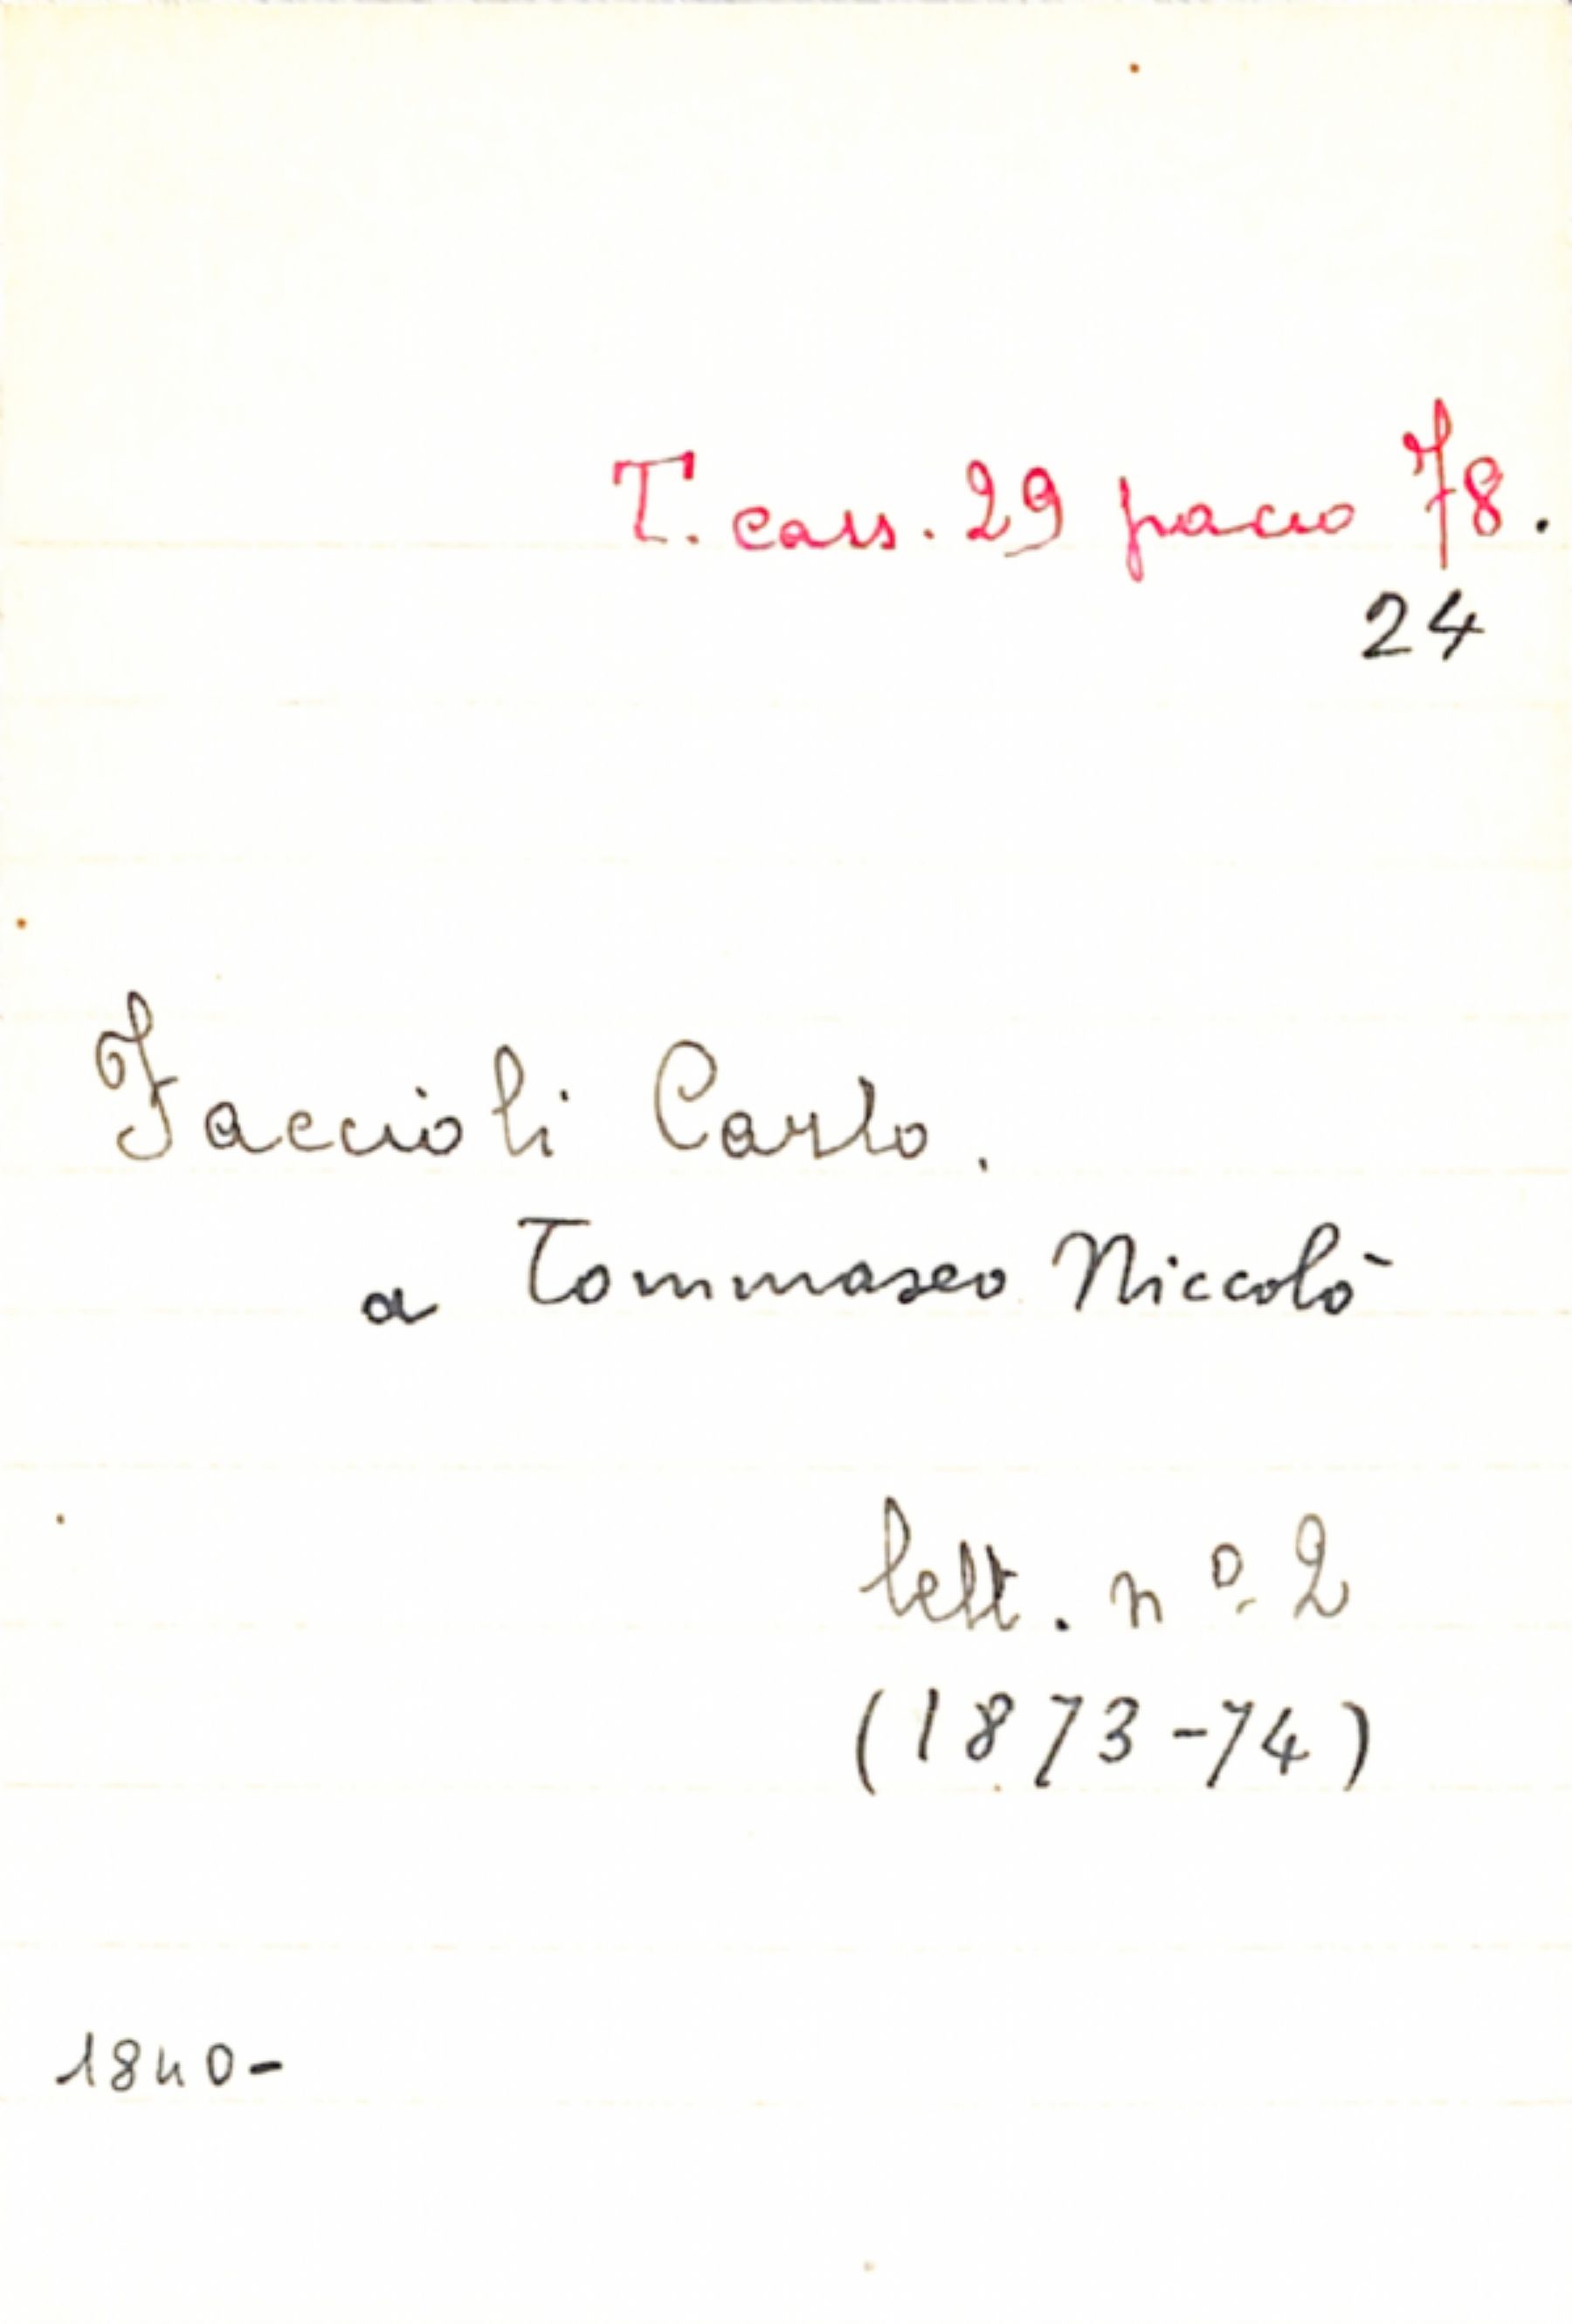 T. cass. 29 pacco 78.
24
Faccioli Carlo.
a Tommaseo Niccolò
lett. nº 2
(1873-74)
1840-